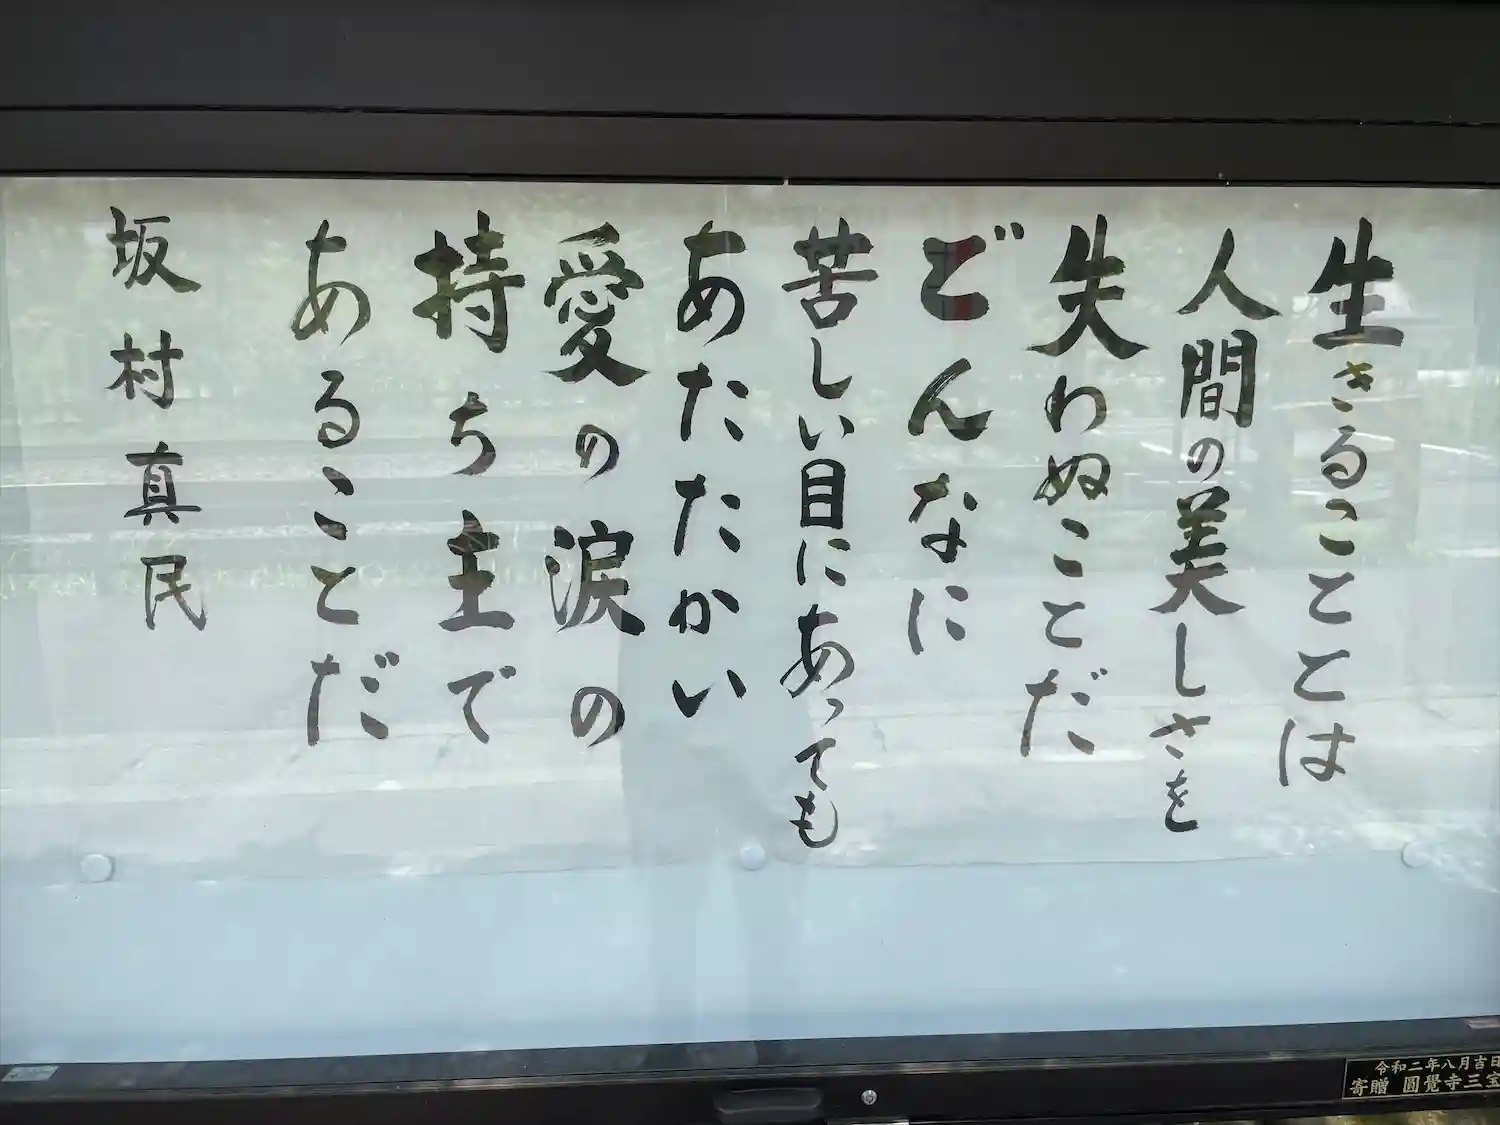 生きることとは
人間の美しさを
失わぬことだ
どんなに
苦しい目にあっても
あたたかい
愛の涙の
持ち主で
あることだ
坂村真民
令和二年八月吉日
寄贈 圓覺寺三宝